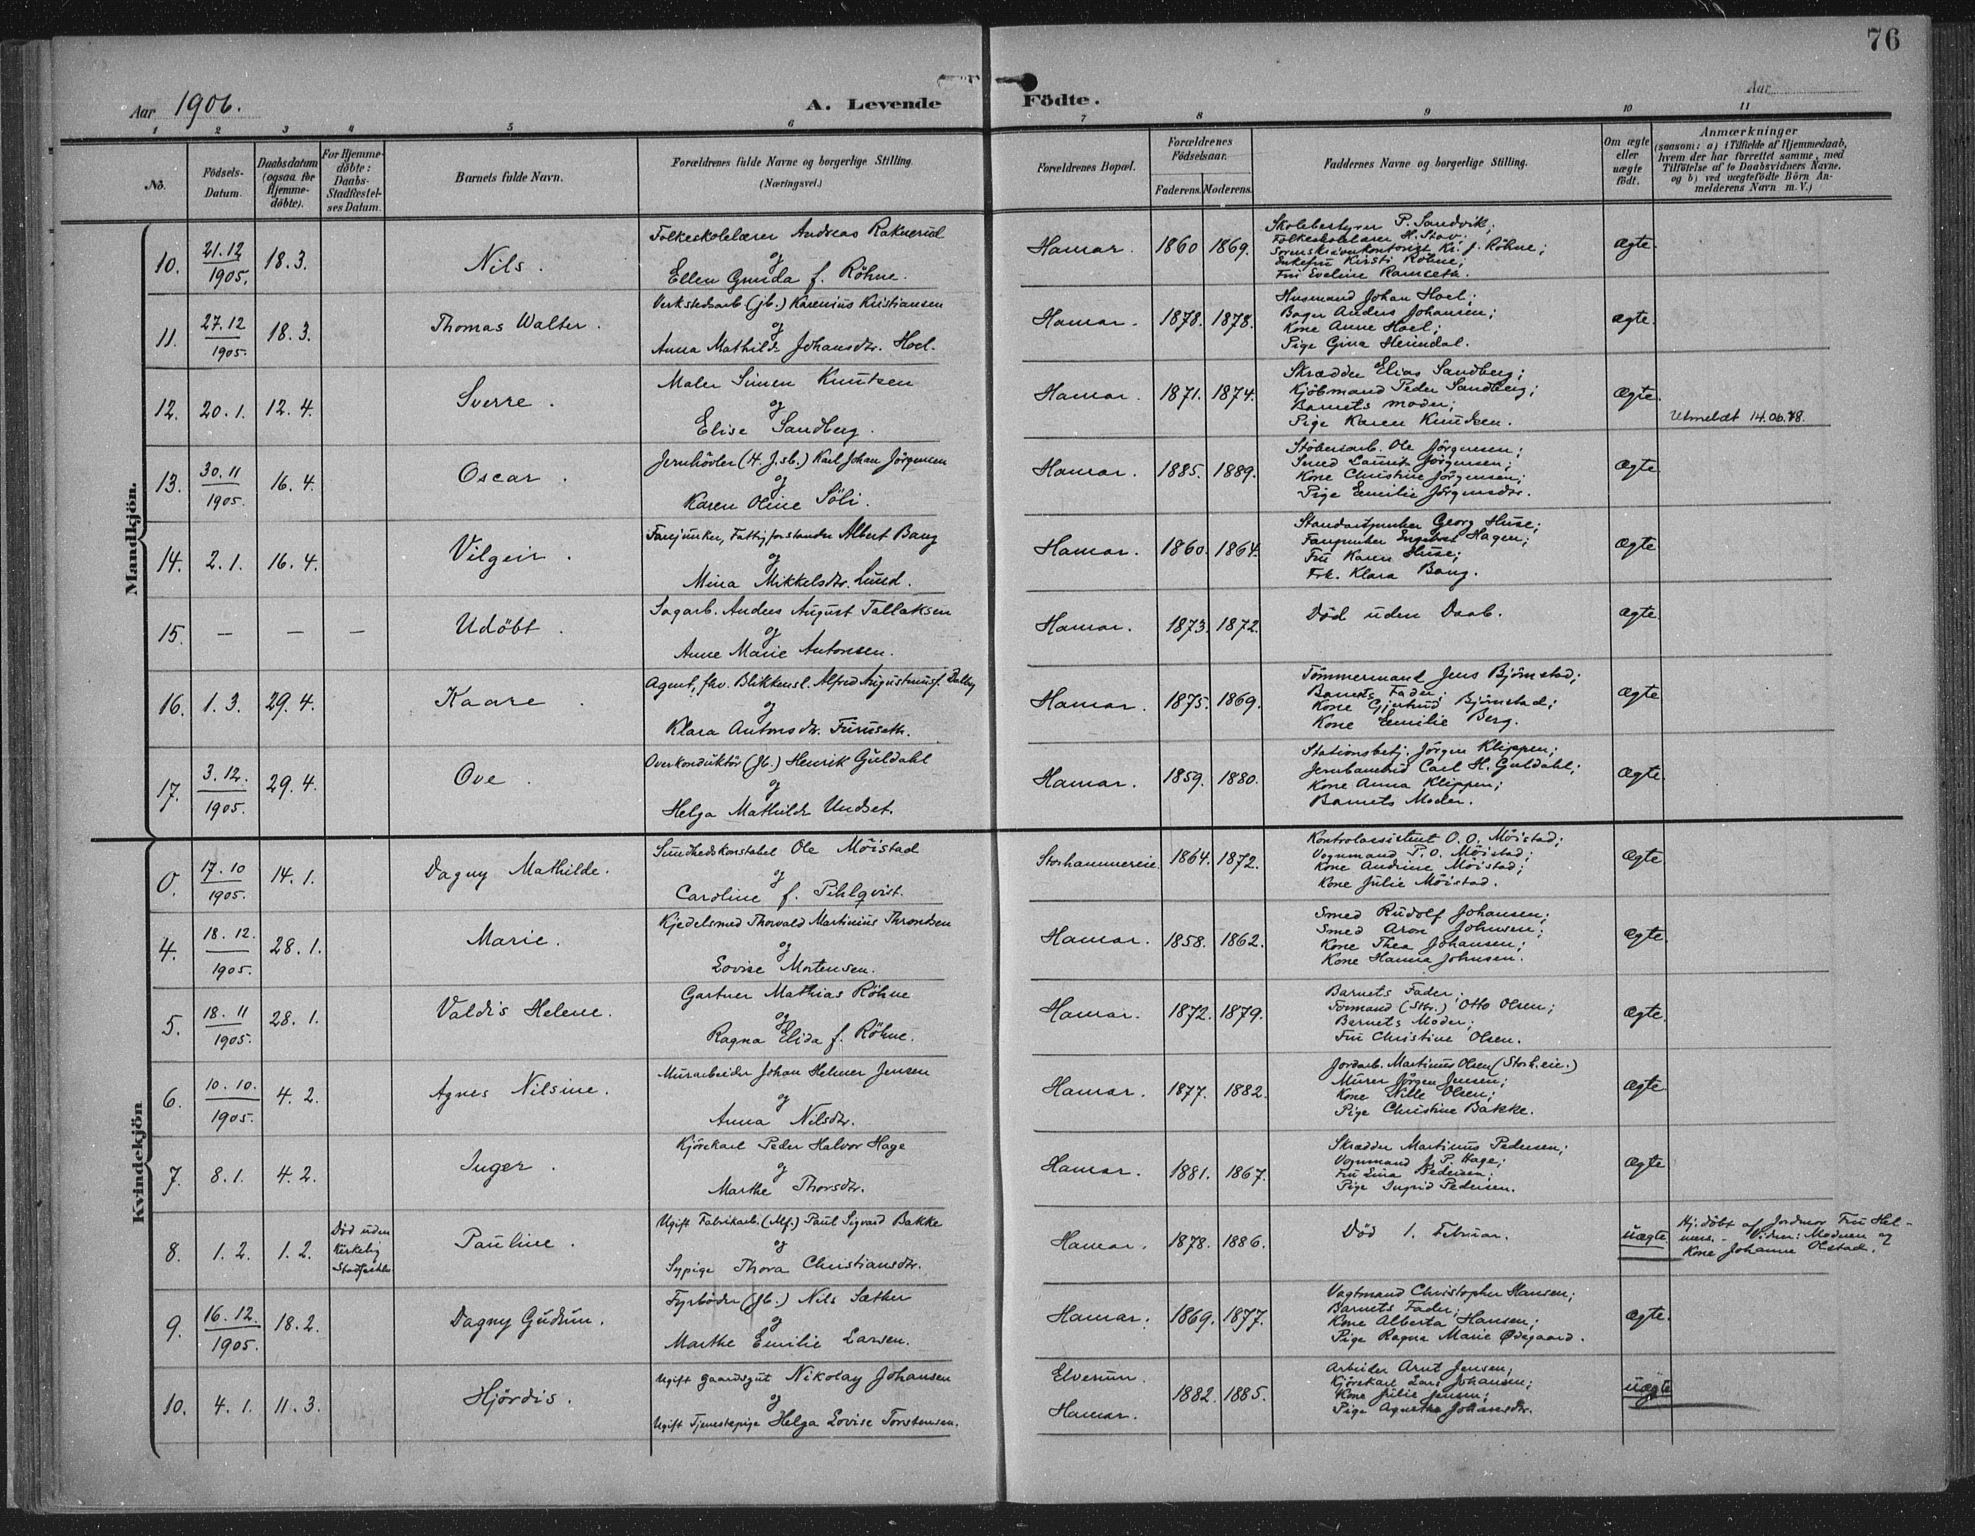 76
Aar 1906. A. Levende Födte. Aar
1 2 3 4 5 6 7 8 9 10 11
No. Födsels-Datum. Daabsdatum (ogsaa for Hjemme-döbte). For Hjemme-döbte: Daabs-Stadfæstel-ses Datum. Barnets fulde Navn. Forældrenes fulde Navne og borgerlige Stilling. (Næringsvei.) Forældrenes Bopæl. Forældrenes Födselsaar. Faderens. Moderens. Faddernes Navne og borgerlige Stilling. Om ægte eller uægte födt. Anmærkninger (saasom: a) i Tilfælde af Hjemmedaab, hvem der har forrettet samme, med Tilföielse af to Daabsvidners Navne, og b) ved uægtefödte Börn An-melderens Navn m. V.)
Mandkjön.
10. 21.12 1905. 18.3. Nils. Folkeskolelærer Andreas Raknerud
og
Ellen Gunda f. Röhne.
Hamar. 1860 1869.
Skolebestyrer P. Sandvik;
Folkeskolelærer H. Stav;
Sorenskriverkontorist Kr. J. Röhne;
Enkefru Kirsti Röhne;
Fru Eveline Ramseth.
ægte
11. 27.12 1905. 18.3. Thomas Walter. Verkstedsarb (jb.) Karenius Kristiansen
og
Anna Mathilde Johansdtr. Hoel.
Hamar. 1878. 1878.
Husmand Johan Hoel;
Bager Anders Johansen;
Kone Anne Hoel;
Pige Gina Heimdal.
ægte.
12. 20.1. 12.4. Sverre. Maler Simen Knutsen
og
Elise Sandberg.
Hamar. 1871. 1874.
Skrædder Elias Sandberg;
Kjöbmand Peder Sandberg;
Barnets moder;
Pige Karen Knudsen.
ægte. Utmeldt 14.06.48.
13. 30.11 1905. 16.4. Oscar. Jernhövler (H. J. sb.) Karl Johan Jörgensen
og
Karen Oline Söli.
Hamar. 1885. 1889.
Stöberiarb. Ole Jörgensen;
Smed Laurits Jörgensen;
Kone Christine Jörgensen;
Pige Emilie Jörgensdtr.
ægte
14. 2.1. 16.4. Vilgeir. Farejunker, Fattigforstander Albert Bang
og
Mina Mikkelsdtr. Lund.
Hamar. 1860. 1864.
Georg Huse;
Hagen;
Fru Karen Huse;
Frk. Klara Bang.
ægte
15. – – – Udöbt. Sagarb. Anders August Tallaksen
og
Anne Marie Antonsen.
Hamar. 1873. 1872.
Död uden Daab.
ægte.
16. 1.3. 29.4. Kaare. Agent, fhv. Blikkensl. Alfred Augustinusf. Dalby
og
Klara Antonsdtr. Furuseth.
Hamar. 1875. 1869.
Tömmermand Jens Björnstad;
Barnets Fader;
Kone Gjertrud Björnstad;
Kone Emilie Berg.
ægte
17. 3.12. 1905. 29.4. Ove. Overkonduktör (Jb.) Henrik Guldahl
og
Helga Mathilde Undset.
Hamar. 1859. 1880.
Stationsbetj. Jörgen Klippen;
Carl H. Guldahl;
Kone Anna Klippen;
Barnets Moder.
ægte.
Kvindekjön
0. 17.10 1905. 14.1. Dagny Mathilde. Sundhedskonstabel Ole Möistad
og
Caroline f. Pihlqvist.
Storhammereie. 1864. 1872.
Kontrolassistent O. O. Möistad;
Vognmand P. O. Möistad;
Kone Andrine Möistad;
Kone Julie Möistad.
ægte
4. 18.12. 1905. 28.1. Marie. Kjedelsmed Thorvald Martinius Throndsen
og
Lovise Mortensen.
Hamar. 1858. 1862.
Smed Rudolf Johansen;
Smed Aron Johnsen;
Kone Thea Johansen;
Kone Hanna Johnsen.
ægte.
5. 18.11 1905. 28.1. Valdis Helene. Gartner Mathias Röhne
og
Ragna Elida f. Röhne.
Hamar. 1872. 1879.
Barnets Fader;
Formand (Stbr.) Otto Olsen;
Barnets Moder;
Fru Christine Olsen.
ægte.
6. 10.10. 1905. 4.2. Agnes Nilsine. Murarbeider Johan Helmer Jensen
og
Anna Nilsdtr.
Hamar. 1877. 1882.
Jordarb. Martinus Olsen (Storh.eie.)
Murer Jörgen Jensen;
Kone Nille Olsen;
Pige Christine Bakke.
ægte
7. 8.1. 4.2. Inger. Kjörekarl Peder Halvor Hage
og
Marthe Thorsdtr.
Hamar. 1881. 1867.
Skrædder Martinus Pedersen;
Vognmand J. P. Hage;
Fru Lina Pedersen;
Pige Ingrid Pedersen.
ægte
8. 1.2. 1.2. Död uden Kirkelig Stadfæstelse Pauline. Ugift Fabrikarb. (Mf.) Paul Sigvard Bakke
og
Sypige Thora Christiansdtr.
Hamar. 1878. 1886.
Död 1. Februar.
uægte
Hj.döbt af Jordmor Fru Hel-
mers. – Vidner: Moderen og
Kone Johanne Olstad.
9. 16.12. 1905. 18.2. Dagny Gudrun. Fyrböder (Jb.) Nils Sæther
og
Marthe Emilie Larsen.
Hamar. 1869. 1877.
Vagtmand Christopher Hansen;
Barnets Fader;
Kone Alberta Hansen;
Pige Ragna Marie Ødegaard.
ægte.
10. 4.1. 11.3. Hjördis. Ugift gaardsgut Nikolay Johansen
og
Ugift Tjenestepige Helga Lovise Torstensen.
Elverum
Hamar. 1882. 1885.
Arbeider Arnt Jensen;
Kjörekarl Lars Johansen;
Kone Julie Jensen;
Pige Agnethe Johansdtr.
uægte